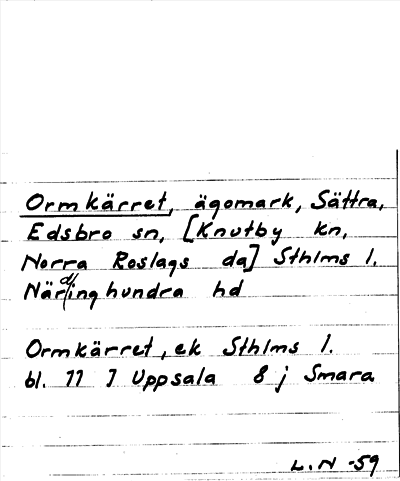 Ormkärret, ägomark, Sättra,
Edsbro sn, [Knutby kn,
Norra Roslags da] Sthlms l.
Närdinghundra hd
Ormkärret, ek Sthlms l.
bl. 77 I Uppsala 8 j Smara
L.N -59